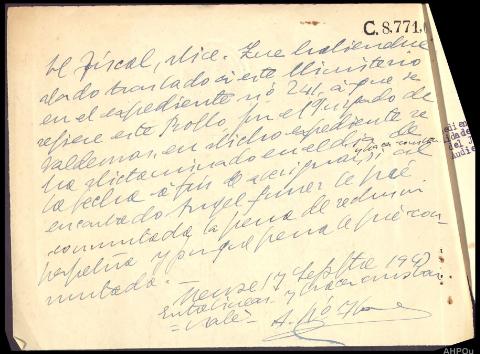 C. 8.771,
El Fiscal, dice: Que habiendose
dado traslado a este Ministerio
en el expediente nº 241, a que se
refiere este Rollo por el Juzgado de
Valdeorras, en dicho expediente se
ha dictaminado en el día de
y hacer constar
la fecha a fin de averiguar si al
encartado Angel le fué
conmutada la pena de reclusion
perpetua y por que pena le fué con-
mutada.—
Orense 17 Sepbre 194
Entrelineas y hacer constar
=vale=
AHPOu